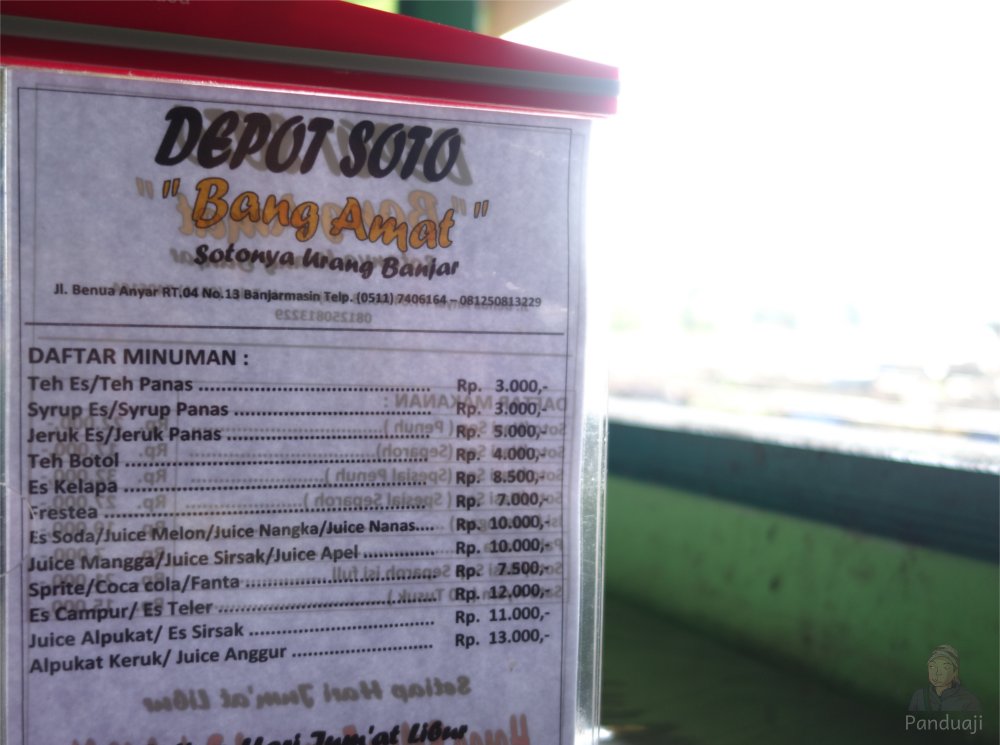 DEPOT SOTO
" Bang Amat "
Sotonya Urang Banjar
Jl. Benua Anyar RT.04 No.13 Banjarmasin Telp. (0511) 7406164 – 081250813229
DAFTAR MINUMAN :
Teh Es/Teh Panas ........................................ Rp. 3.000,-
Syrup Es/Syrup Panas .................................. Rp. 3.000,-
Jeruk Es/Jeruk Panas ................................... Rp. 5.000,-
Teh Botol .................................................... Rp. 4.000,-
Es Kelapa .................................................... Rp. 8.500,-
Frestea ....................................................... Rp. 7.000,-
Es Soda/Juice Melon/Juice Nangka/Juice Nanas.... Rp. 10.000,-
Juice Mangga/Juice Sirsak/Juice Apel ............ Rp. 10.000,-
Sprite/Coca cola/Fanta ................................. Rp. 7.500,-
Es Campur/ Es Teler ..................................... Rp. 12.000,-
Juice Alpukat/ Es Sirsak ................................ Rp. 11.000,-
Alpukat Keruk/ Juice Anggur ........................ Rp. 13.000,-
Hari Jum'at Libur
Panduaji